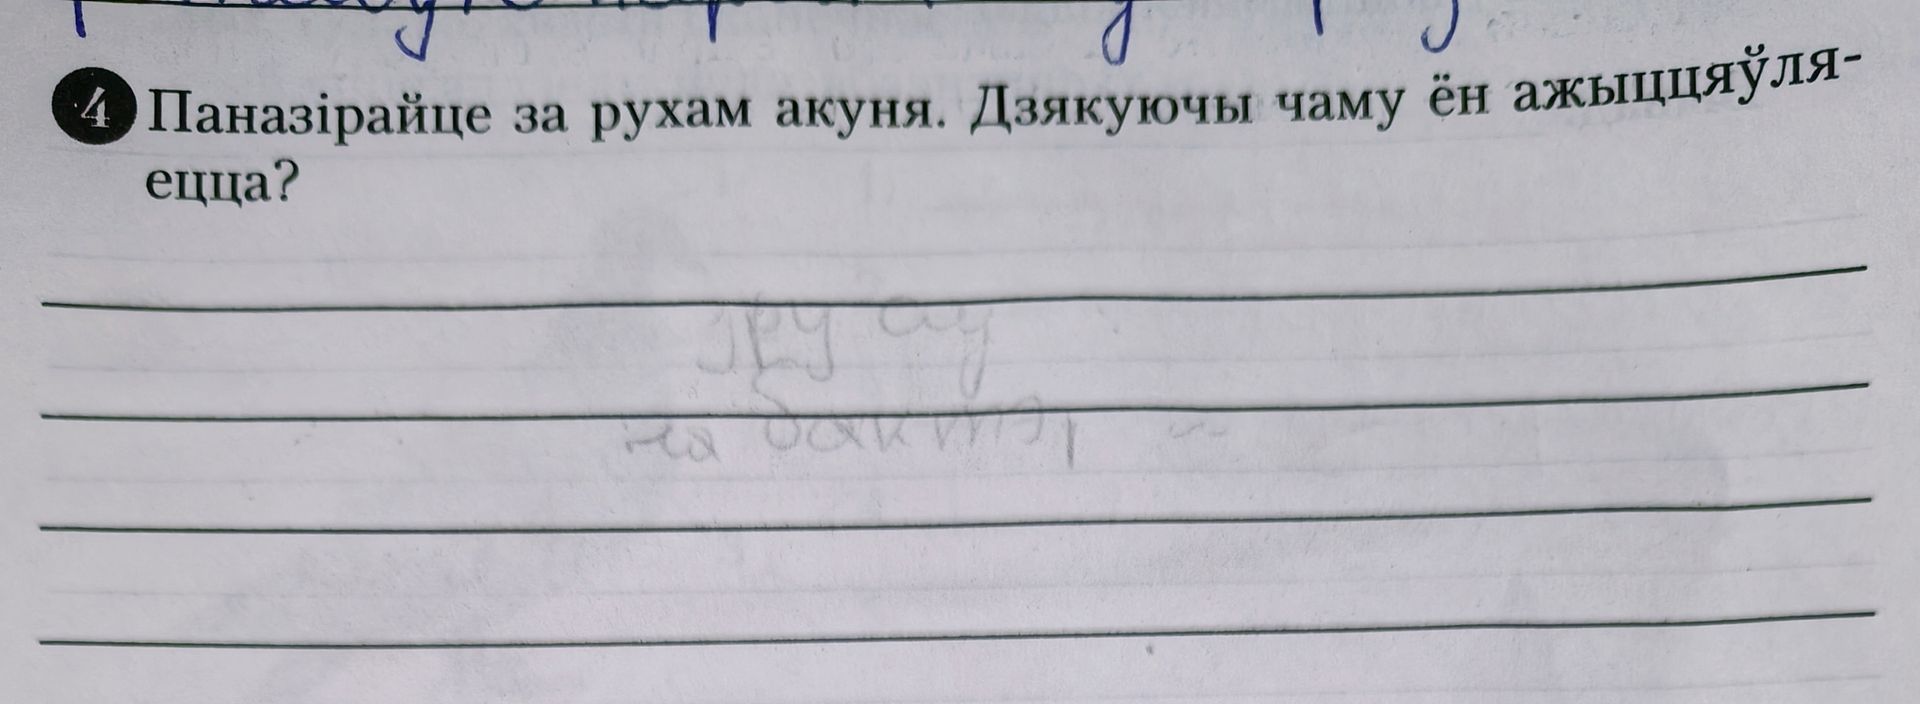 4 Паназірайце за рухам акуня. Дзякуючы чаму ён ажыццяўля-
ецца?